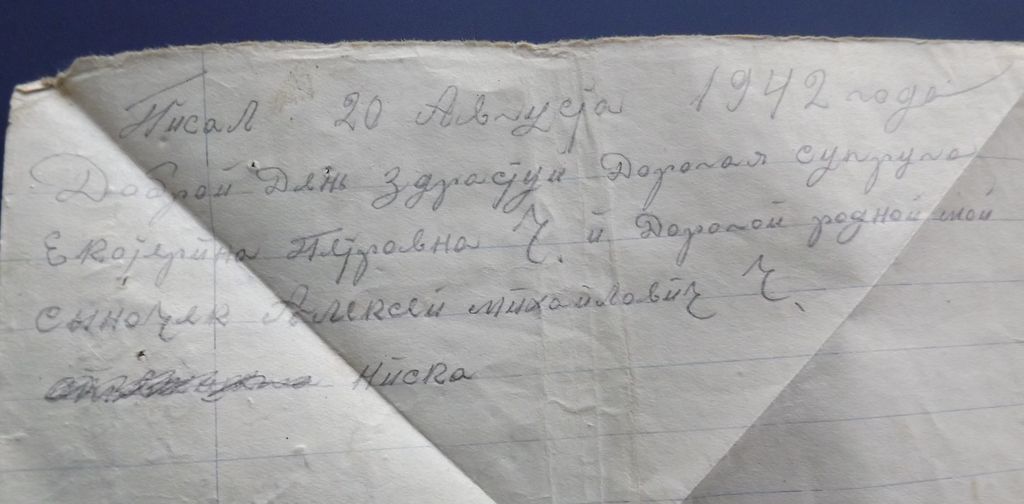 Писал 20 Августа 1942 года
Доброй Дянь Здраствуй Дорогая супруга
Екатярина Пятровна Ч. и Дорогой родной мой
сыночяк Алексей михайлович Ч.
Ниска